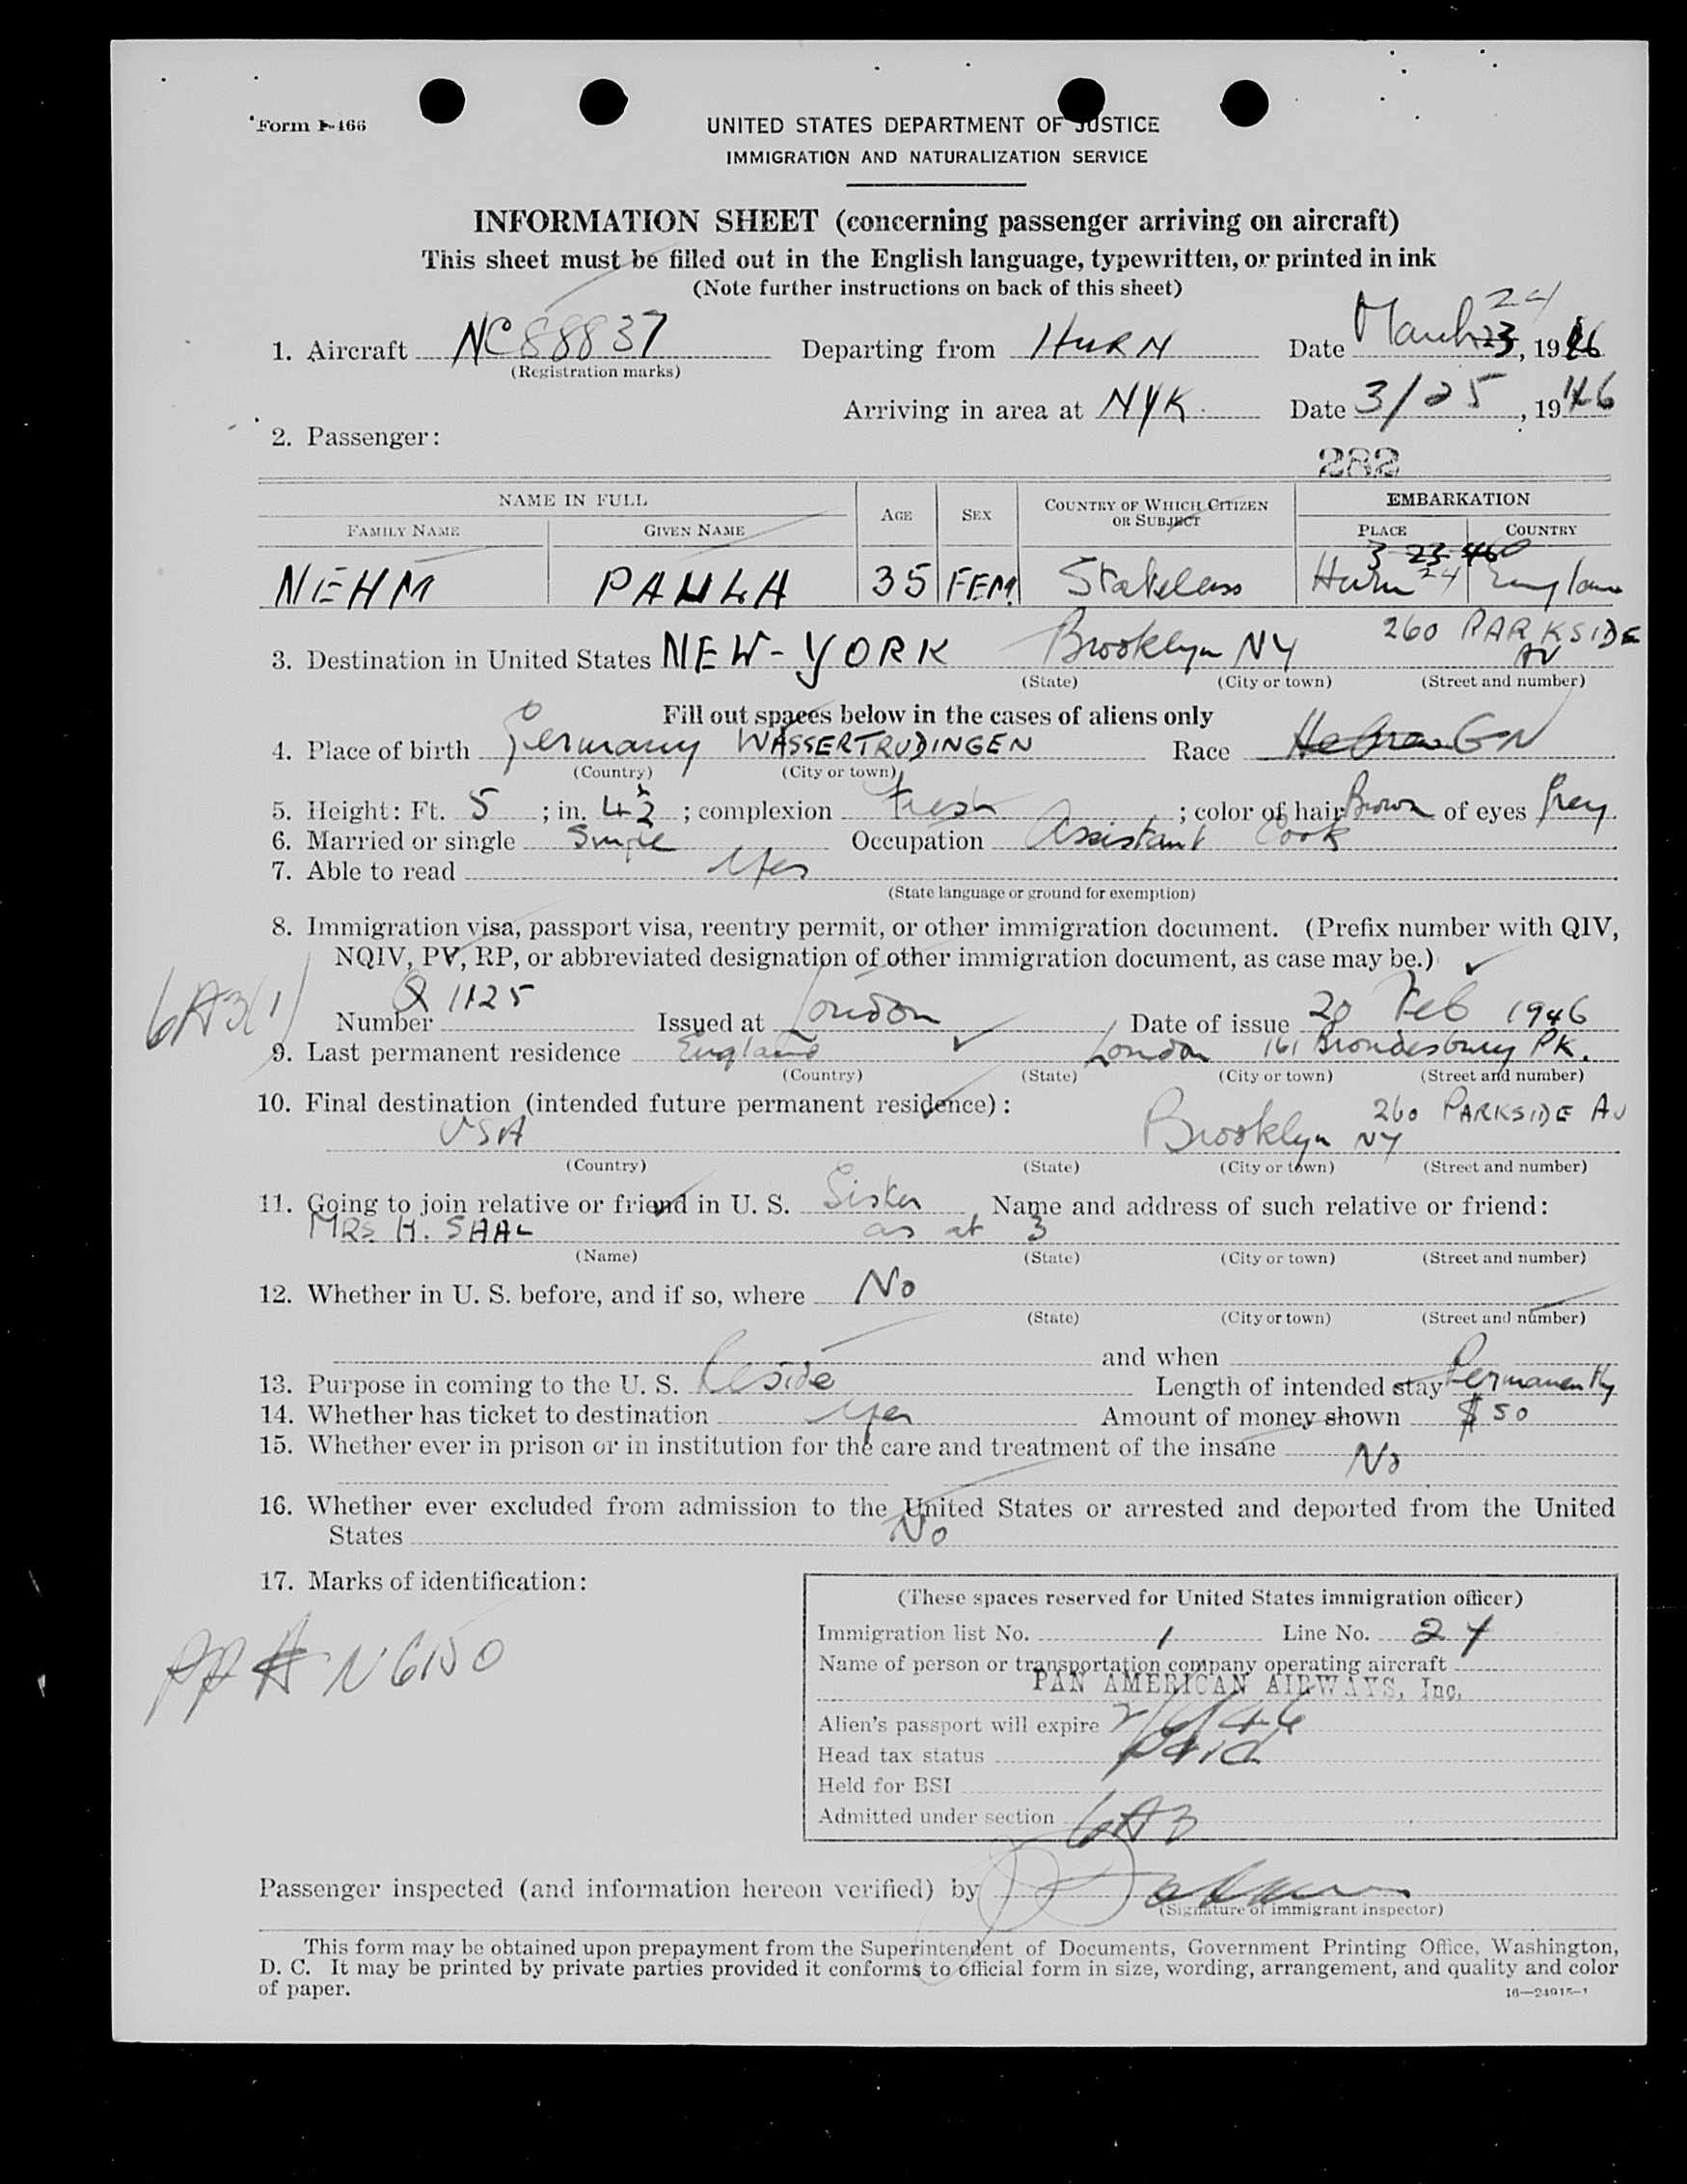 Form I-466
UNITED STATES DEPARTMENT OF JUSTICE
IMMIGRATION AND NATURALIZATION SERVICE
INFORMATION SHEET (concerning passenger arriving on aircraft)
This sheet must be filled out in the English language, typewritten, or printed in ink
(Note further instructions on back of this sheet)
1. Aircraft NC 88837 Departing from HURN Date March 23 24, 1946
(Registration marks)
Arriving in area at NYK. Date 3/25, 1946
2. Passenger:
282
NAME IN FULL AGE SEX COUNTRY OF WHICH CITIZEN OR SUBJECT EMBARKATION
FAMILY NAME GIVEN NAME PLACE COUNTRY
3 23 46
NEHM PAULA 35 FEM. Stateless Hurn 24 England
260 PARKSIDE AV
3. Destination in United States NEW-YORK Brooklyn NY
(State) (City or town) (Street and number)
Fill out spaces below in the cases of aliens only
4. Place of birth Germany WASSERTRUDINGEN Race Hebrew GN
(Country) (City or town)
5. Height: Ft. 5 ; in. ; complexion Fresh ; color of hair Brown of eyes Grey
6. Married or single Single Occupation Assistant Cook
7. Able to read Yes
(State language or ground for exemption)
8. Immigration visa, passport visa, reentry permit, or other immigration document. (Prefix number with QIV,
NQIV, PV, RP, or abbreviated designation of other immigration document, as case may be.)
6A3(1)
Number Q 1125 Issued at London Date of issue 20 Feb 1946
9. Last permanent residence England London 161 Brondesbury PK.
(Country) (State) (City or town) (Street and number)
10. Final destination (intended future permanent residence):
USA Brooklyn NY 260 PARKSIDE AV
(Country) (State) (City or town) (Street and number)
11. Going to join relative or friend in U. S. Sister Name and address of such relative or friend:
MRS H. SAAL as at 3
(Name) (State) (City or town) (Street and number)
12. Whether in U. S. before, and if so, where No
(State) (City or town) (Street and number)
and when
13. Purpose in coming to the U. S. Reside Length of intended stay Permanently
14. Whether has ticket to destination Yes Amount of money shown $50
15. Whether ever in prison or in institution for the care and treatment of the insane No
16. Whether ever excluded from admission to the United States or arrested and deported from the United
States No
17. Marks of identification:
N6150
(These spaces reserved for United States immigration officer)
Immigration list No. 1 Line No. 24
Name of person or transportation company operating aircraft
PAN AMERICAN AIRWAYS, Inc.
Alien's passport will expire
Head tax status paid
Held for BSI
Admitted under section 6A3
Passenger inspected (and information hereon verified) by
(Signature of immigrant inspector)
This form may be obtained upon prepayment from the Superintendent of Documents, Government Printing Office, Washington,
D. C. It may be printed by private parties provided it conforms to official form in size, wording, arrangement, and quality and color
of paper.
16—24915-1